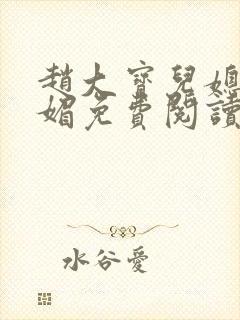 趙大寶兒媳
媚免費閱讀
水谷愛